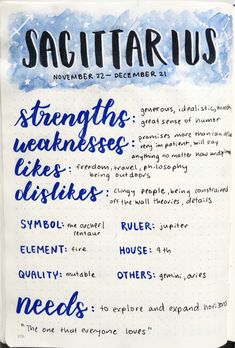 SAGITTARIUS
NOVEMBER 22 — DECEMBER 21
strengths: generous, idealistic,
great sense of humor
weaknesses: promises more than can
very impatient, will say
anything no matter how
likes: freedom, travel, philosophy
being outdoors
dislikes: clingy people, being constrained
off the wall theories, details
SYMBOL: the archer/ centaur
RULER: jupiter
ELEMENT: fire
HOUSE: 9th
QUALITY: mutable
OTHERS: gemini, aries
needs: to explore and expand horizons
"The one that everyone loves"